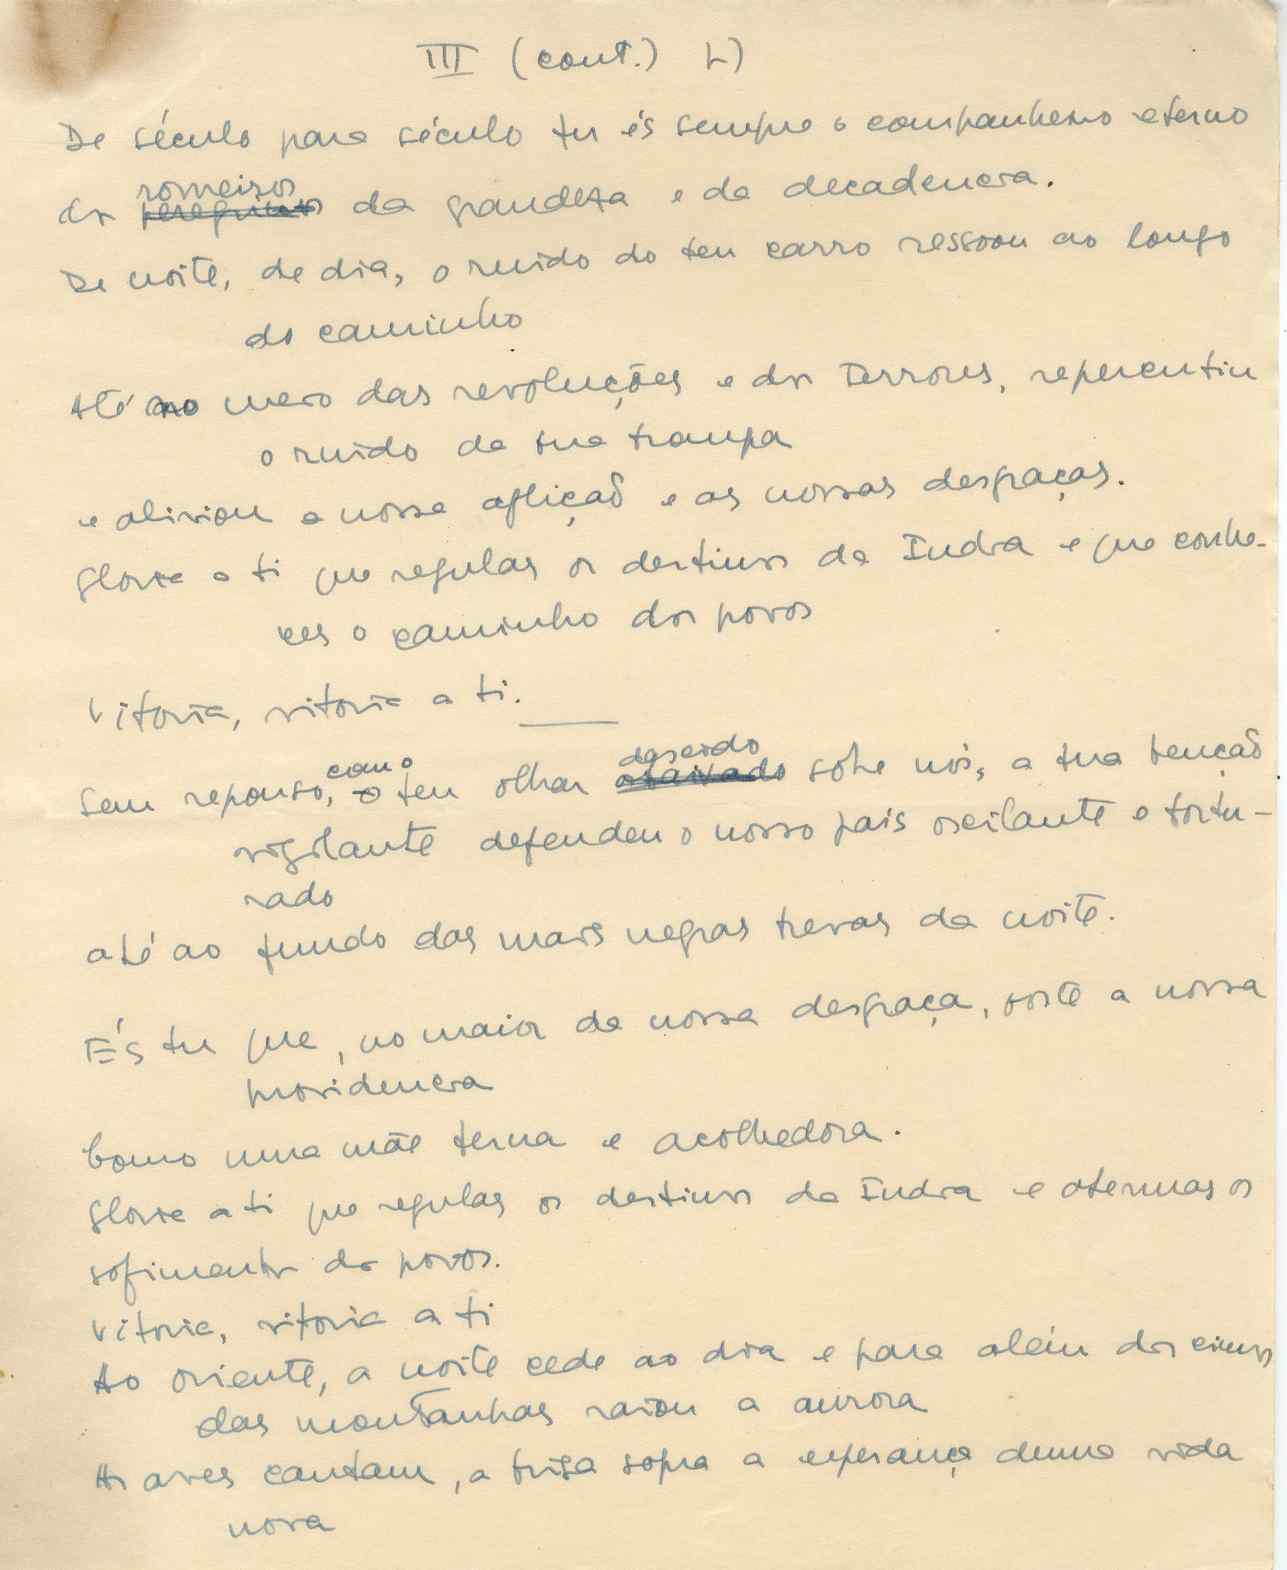 III (cont.) L)
De século para século tu és sempre o companheiro eterno
dos romeiros da grandeza e da decadencia.
De noite, de dia, o ruido do teu carro ressoou ao longo
do caminho
Até ao meio das revoluções e dos Terrores, repercutiu
o ruido da tua trompa
e aliviou a nossa aflição e as nossas desgraças.
Gloria a ti que regulas os destinos da India e que conhe-
ces o caminho dos povos
Vitoria, vitoria a ti.
Sem repouso, como o teu olhar descido sobre nós, a tua benção
vigilante defendeu o nosso pais oscilante e tortu-
rado
até ao fundo das mais negras trevas da noite.
És tu que, no maior da nossa desgraça, foste a nossa
providencia
Como uma mãe terna e acolhedora.
Gloria a ti que regulas os destinos da India e atenuas os
sofrimentos dos povos.
Vitoria, vitoria a ti
Ao oriente, a noite cede ao dia e para além dos cimos
das montanhas raiou a aurora
As aves cantam, a brisa sopra a esperança duma vida
nova